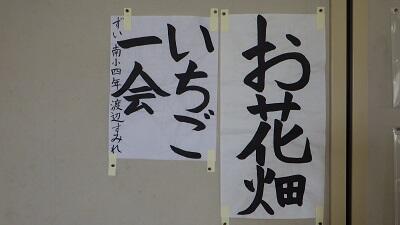 お花畑
いちご
一会
ずい南小四年 渡辺すみれ